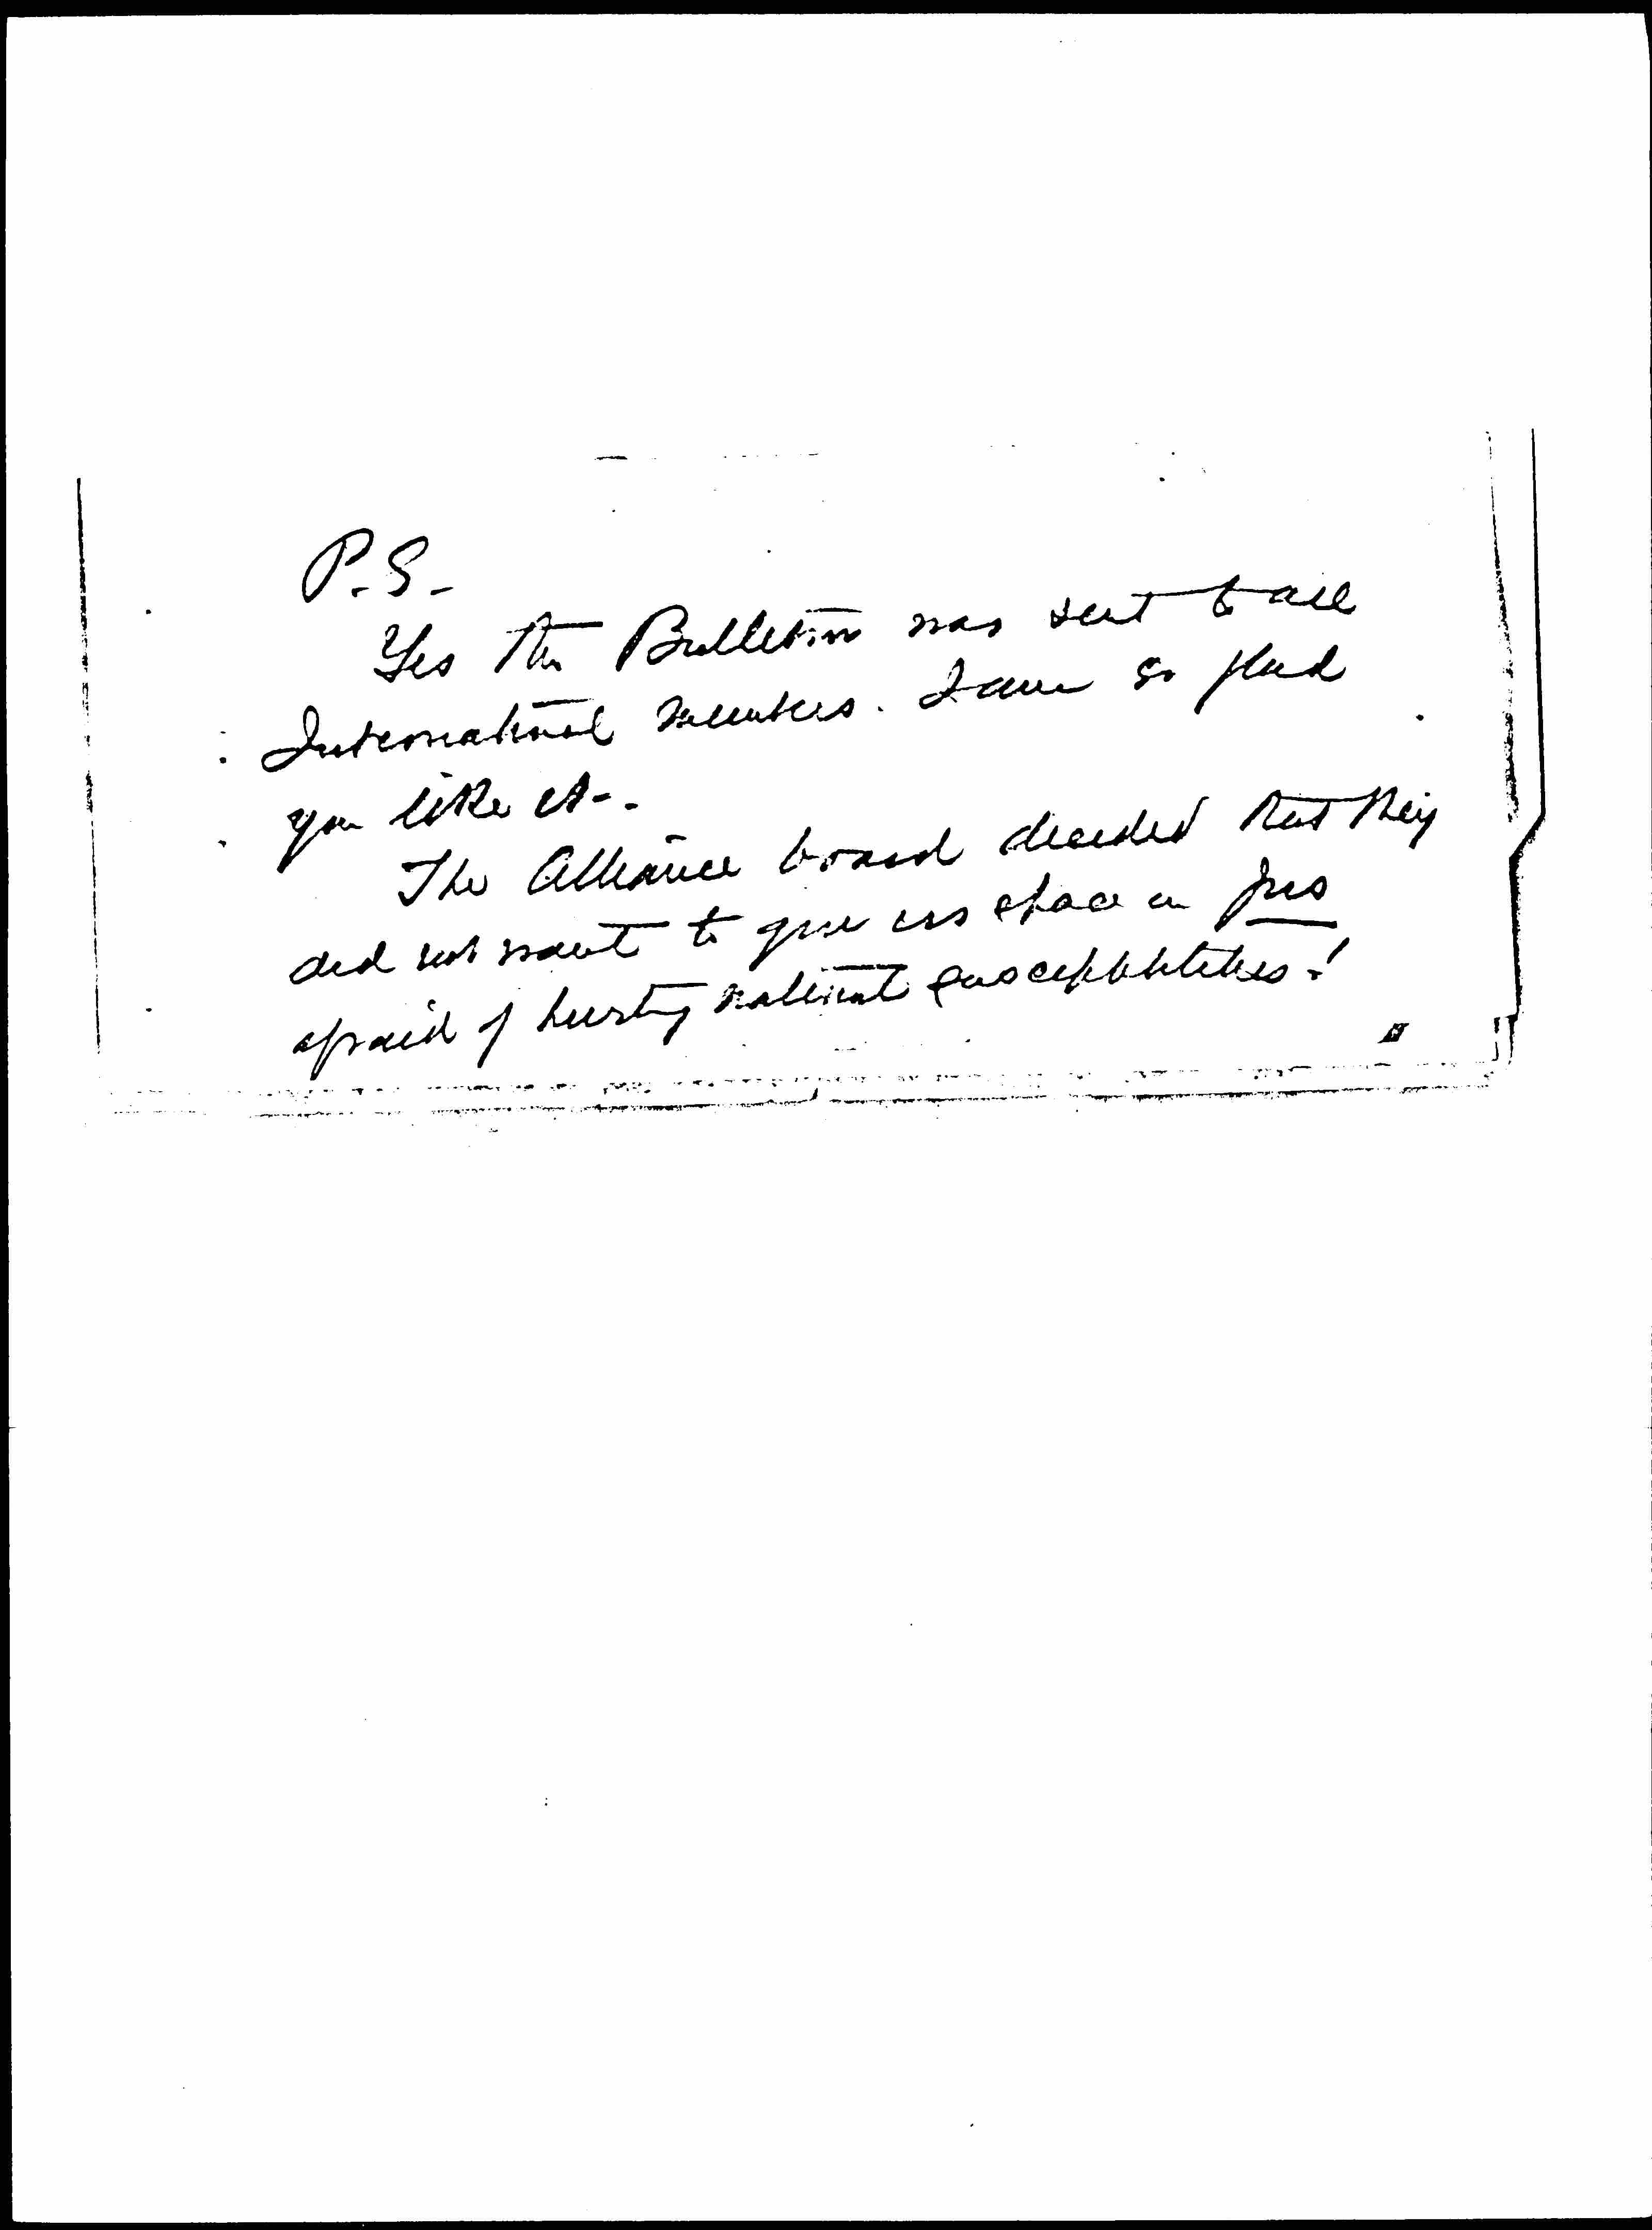 P.S.
Yes the Bulletin was sent to all
International members. I am so glad
you like it-.
The Alliance board decided that they
did not want to give us space in Jus
afraid of hurting national susceptibilities!